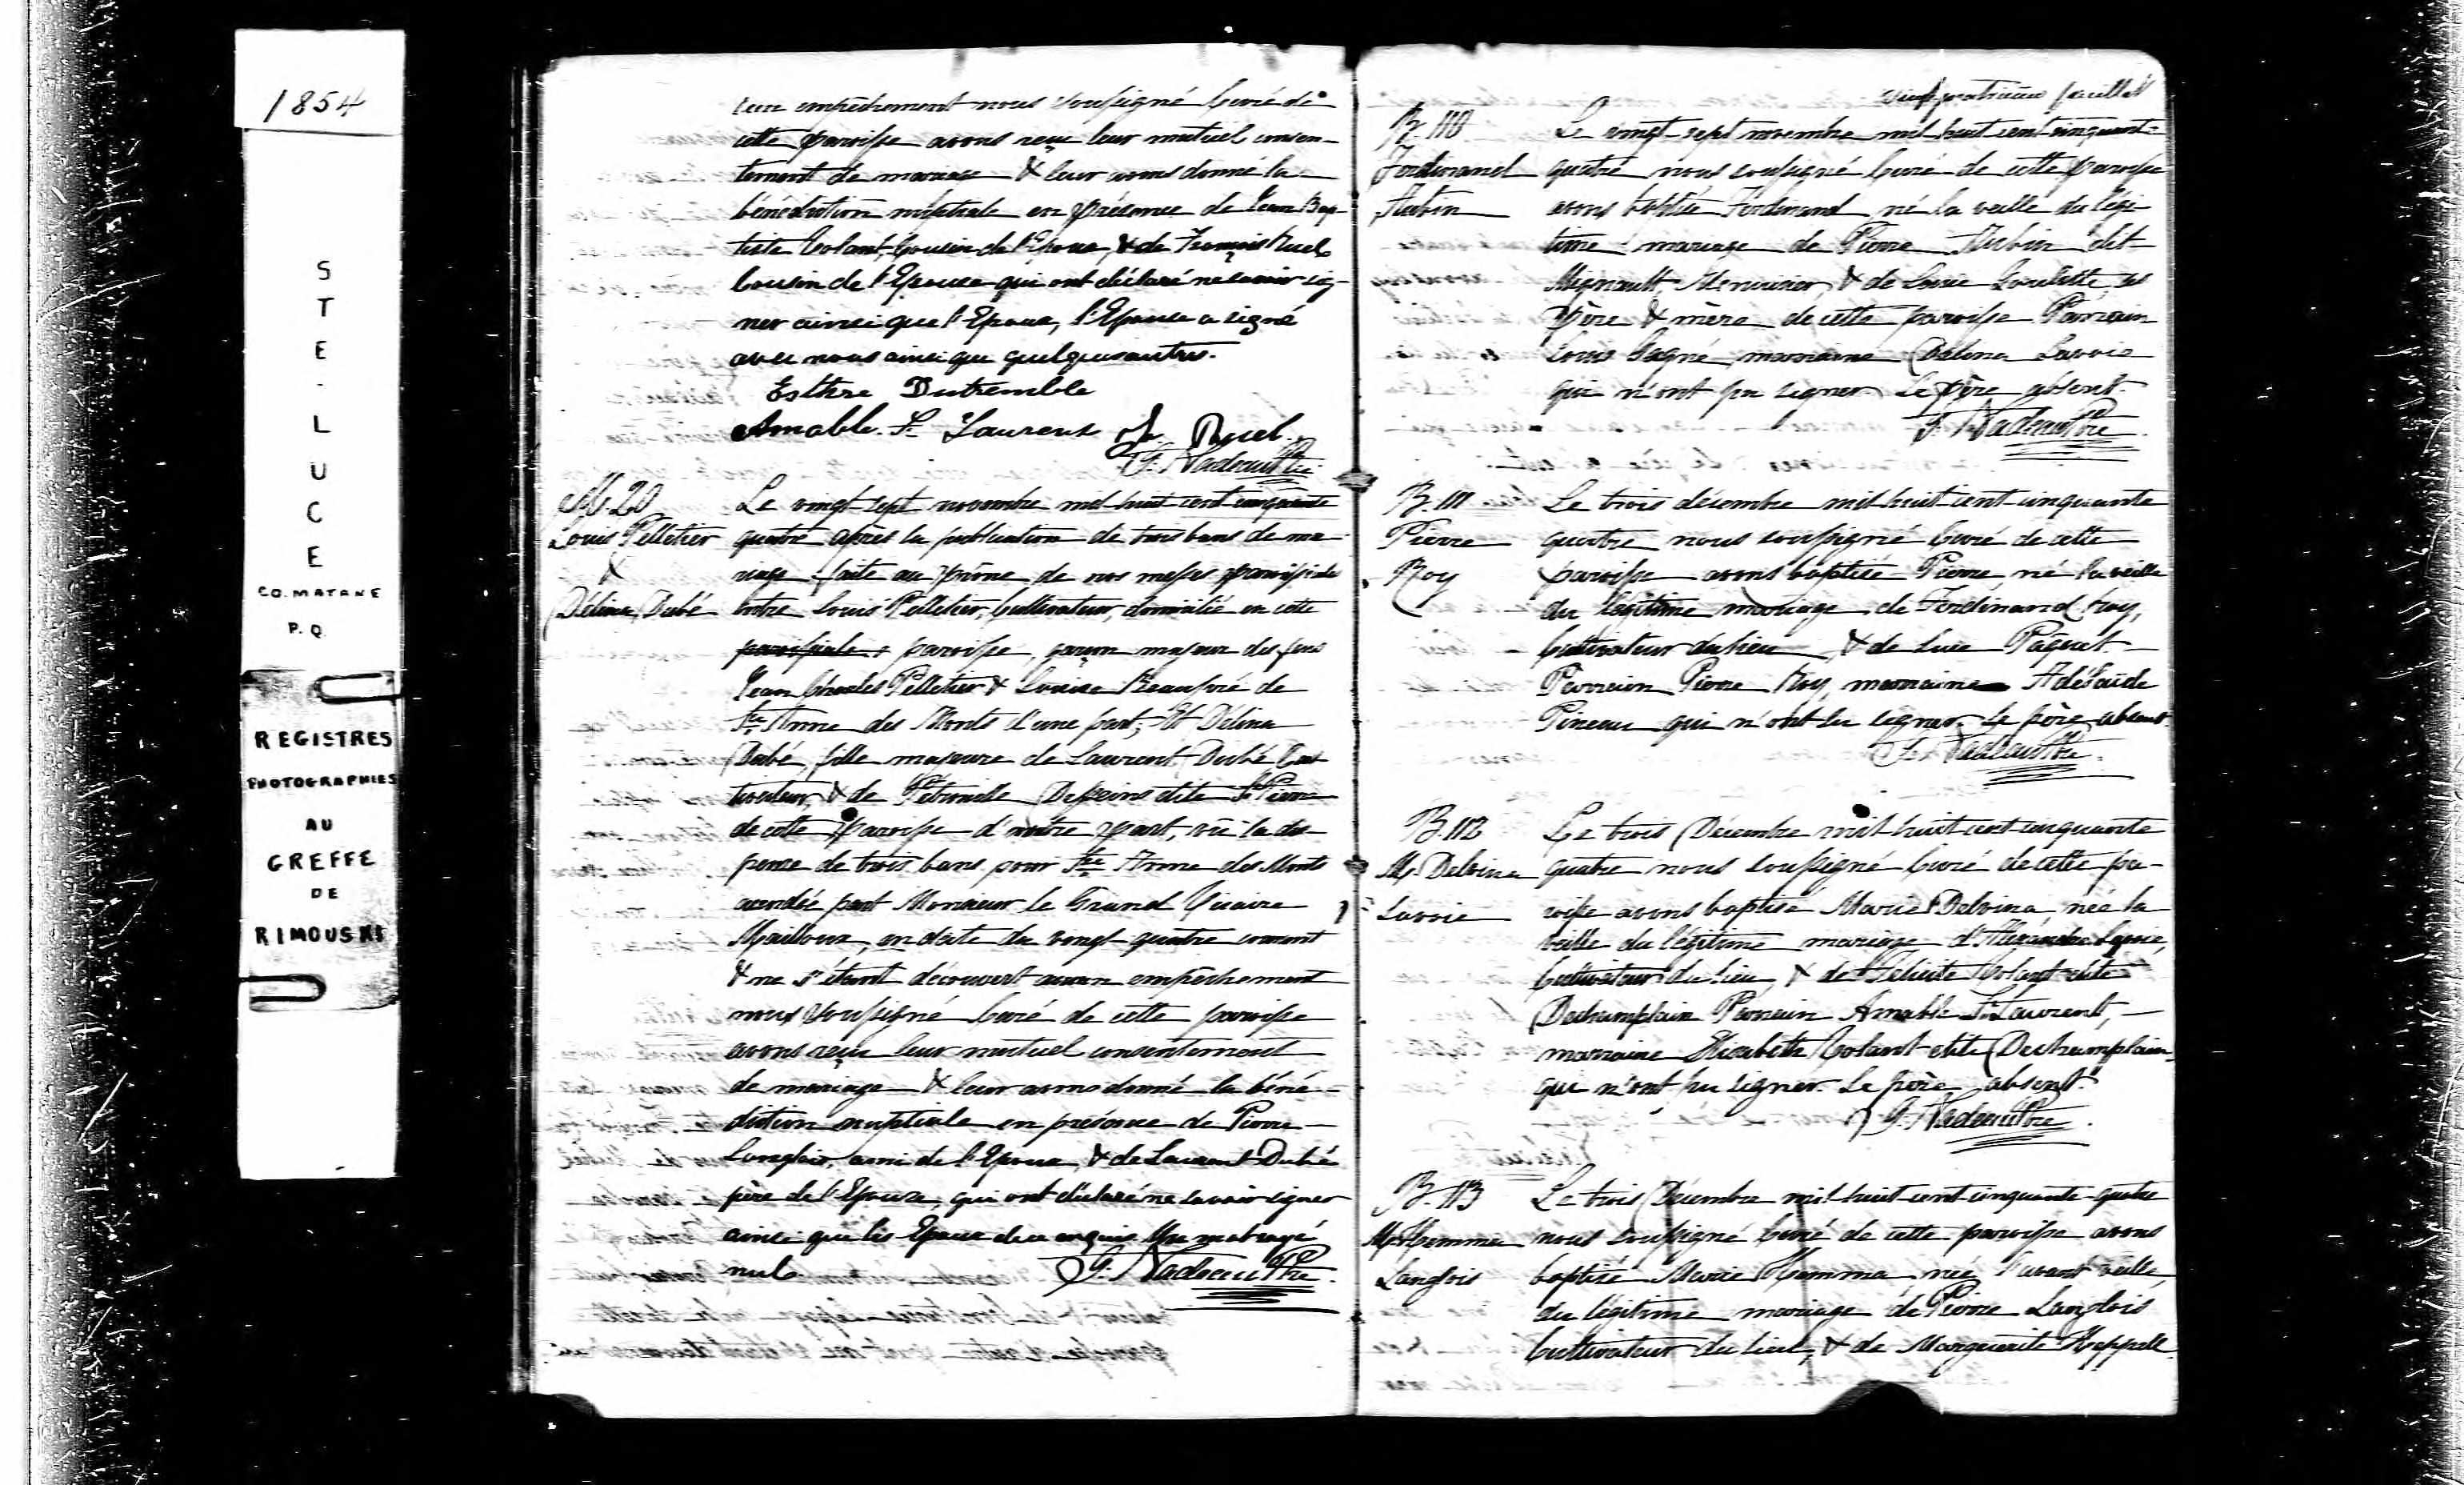 1854
STE-LUCE
CO. MATANE
P.Q.
REGISTRES
PHOTOGRAPHIES
AU
GREFFE
DE
RIMOUSKI
cun empêchement nous soussigné Curé de
cette paroisse avons reçu leur mutuel consen-
tement de mariage & leur avons donné la
bénédiction nuptiale en présence de Jean Bap-
tiste Volant, Cousin de l'Epoux, & de François Ruel
Cousin de l'Epouse qui ont déclaré ne savoir sig-
ner ainsi que l'Epoux, l'Epouse a signé
avec nous ainsi que quelques autres.
Esthre Dutremble
Amable St Laurent Ruel
G. Nadeau Ptre
M. 20
Louis Pelletier
&
Délina Dubé
Le vingt-sept novembre mil-huit-cent-cinquante
quatre après la publication de trois bans de ma-
riage faite au prône de nos messes paroissiales
entre Louis Pelletier, Cultivateur, domicilié en cette
paroissiale paroisse, garçon majeur des feus
Jean Charles Pelletier & Louise Beaupré de
Ste Anne des Monts d'une part; Et Délina
Dubé, fille majeure de Laurent Dubé Cul-
tivateur, & de Pétronille Desseins dite St Pierre
de cette paroisse d'autre part, vu la dis-
pense de trois bans pour Ste Anne des Monts
accordée part Monsieur le Grand Vicaire
Mailloux, en date du vingt-quatre courant
& ne s'étant découvert aucun empêchement
nous soussigné Curé de cette paroisse
avons reçu leur mutuel consentement
de mariage & leur avons donné la béné-
diction nuptiale en présence de Pierre
Langlois, ami de l'Epoux, & de Laurent Dubé
père de l'Epouse, qui ont déclaré ne savoir signer
ainsi que les Epoux de ce enquis. Un mot rayé
nul. G. Nadeau Ptre
feuillet
B. 110
Ferdinand
Aubin
Le vingt-sept novembre mil-huit-cent-cinquant-
quatre nous soussigné Curé de cette paroisse
avons baptisé Ferdinand né la veille du légi-
time mariage de Pierre Aubin dit
Mignault, Menuisier, & de Louise ses
père & mère de cette paroisse Parrain
Louis Gagné, marraine Delina Lavoie
qui n'ont pu signer. Le père absent.
G. Nadeau Ptre
B. 111
Pierre
Roy
Le trois décembre mil-huit-cent-cinquante
quatre nous soussigné Curé de cette
paroisse avons baptisé Pierre né la veille
du légitime mariage de Ferdinand Roy,
Cultivateur du lieu, & de Luce Paquet
Parrain Pierre Roy, marraine Adélaïde
Pineau qui n'ont su signer. Le père absent.
G. Nadeau Ptre
B. 112
M. Delvina
Lavoie
Le trois Décembre mil-huit-cent-cinquante
quatre nous soussigné Curé de cette pa-
roisse avons baptisé Marie Delvina, née la
veille du légitime mariage d'Alexandre Lavoie,
Cultivateur du lieu, & de Félicité Volant dite
Dechamplain Parrain Amable St Laurent,
marraine Elizabeth Volant dite Dechamplain
qui n'ont pu signer. Le père absent.
G. Nadeau Ptre
B. 113
M. Hemma
Langlois
Le trois Décembre mil-huit-cent-cinquante-quatre
nous soussigné Curé de cette paroisse avons
baptisé Marie Hemma née l'avant veille
du légitime mariage de Pierre Langlois
Cultivateur du lieu, & de Marguerite Heppell